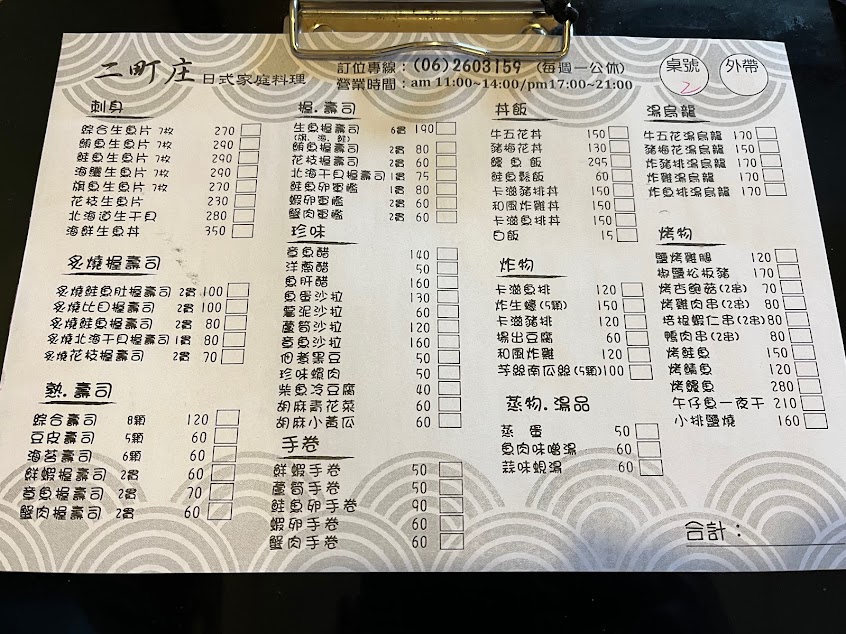 二町庄 日式家庭料理
訂位專線：(06)2603159 (每週一公休)
營業時間：am 11:00~14:00/pm17:00~21:00
桌號
2
外帶
刺身
綜合生魚片 7枚 270
鮪魚生魚片 7枚 290
鮭魚生魚片 7枚 290
海鱺生魚片 7枚 290
旗魚生魚片 7枚 270
花枝生魚片 230
北海道生干貝 280
海鮮生魚丼 350
炙燒握壽司
炙燒鮭魚肚握壽司 2貫 100
炙燒比目握壽司 2貫 100
炙燒鮭魚握壽司 2貫 80
炙燒北海干貝握壽司 1貫 80
炙燒花枝握壽司 2貫 70
熟.壽司
綜合壽司 8顆 120
豆皮壽司 5顆 60
海苔壽司 6顆 60
鮮蝦握壽司 2貫 60
章魚握壽司 2貫 70
蟹肉握壽司 2貫 60
握.壽司
生魚握壽司 6貫 190
鮪魚握壽司 2貫 80
花枝握壽司 2貫 60
北海干貝握壽司 1貫 75
鮭魚卵軍艦 1貫 80
蝦卵軍艦 2貫 60
蟹肉軍艦 2貫 60
珍味
章魚醋 140
洋蔥醋 50
魚肝醋 160
魚蛋沙拉 130
薯泥沙拉 60
蘆筍沙拉 120
章魚沙拉 160
佃煮黑豆 50
珍味螺肉 50
柴魚冷豆腐 40
胡麻青花菜 60
胡麻小黃瓜 60
手卷
鮮蝦手卷 50
蘆筍手卷 50
鮭魚卵手卷 90
蝦卵手卷 60
蟹肉手卷 60
丼飯
牛五花丼 150
豬梅花丼 130
鰻魚飯 295
鮭魚鬆飯 60
卡滋豬排丼 150
和風炸雞丼 150
卡滋魚排丼 150
白飯 15
炸物
卡滋魚排 120
炸生蠔(5顆) 150
卡滋豬排 120
揚出豆腐 60
和風炸雞 120
芋絲南瓜絲(5顆)100
蒸物.湯品
蒸蛋 50
魚肉味噌湯 60
蒜味蜆湯 60
湯烏龍
牛五花湯烏龍 170
豬梅花湯烏龍 150
炸豬排湯烏龍 170
炸雞湯烏龍 170
炸魚排湯烏龍 170
烤物
鹽烤雞腿 120
椒鹽松板豬 170
烤杏鮑菇(2串) 70
烤雞肉串(2串) 80
培根蝦仁串(2串)80
鴨肉串(2串) 80
烤鮭魚 150
烤鯖魚 120
烤鰻魚 280
午仔魚一夜干 210
小排鹽燒 160
合計：